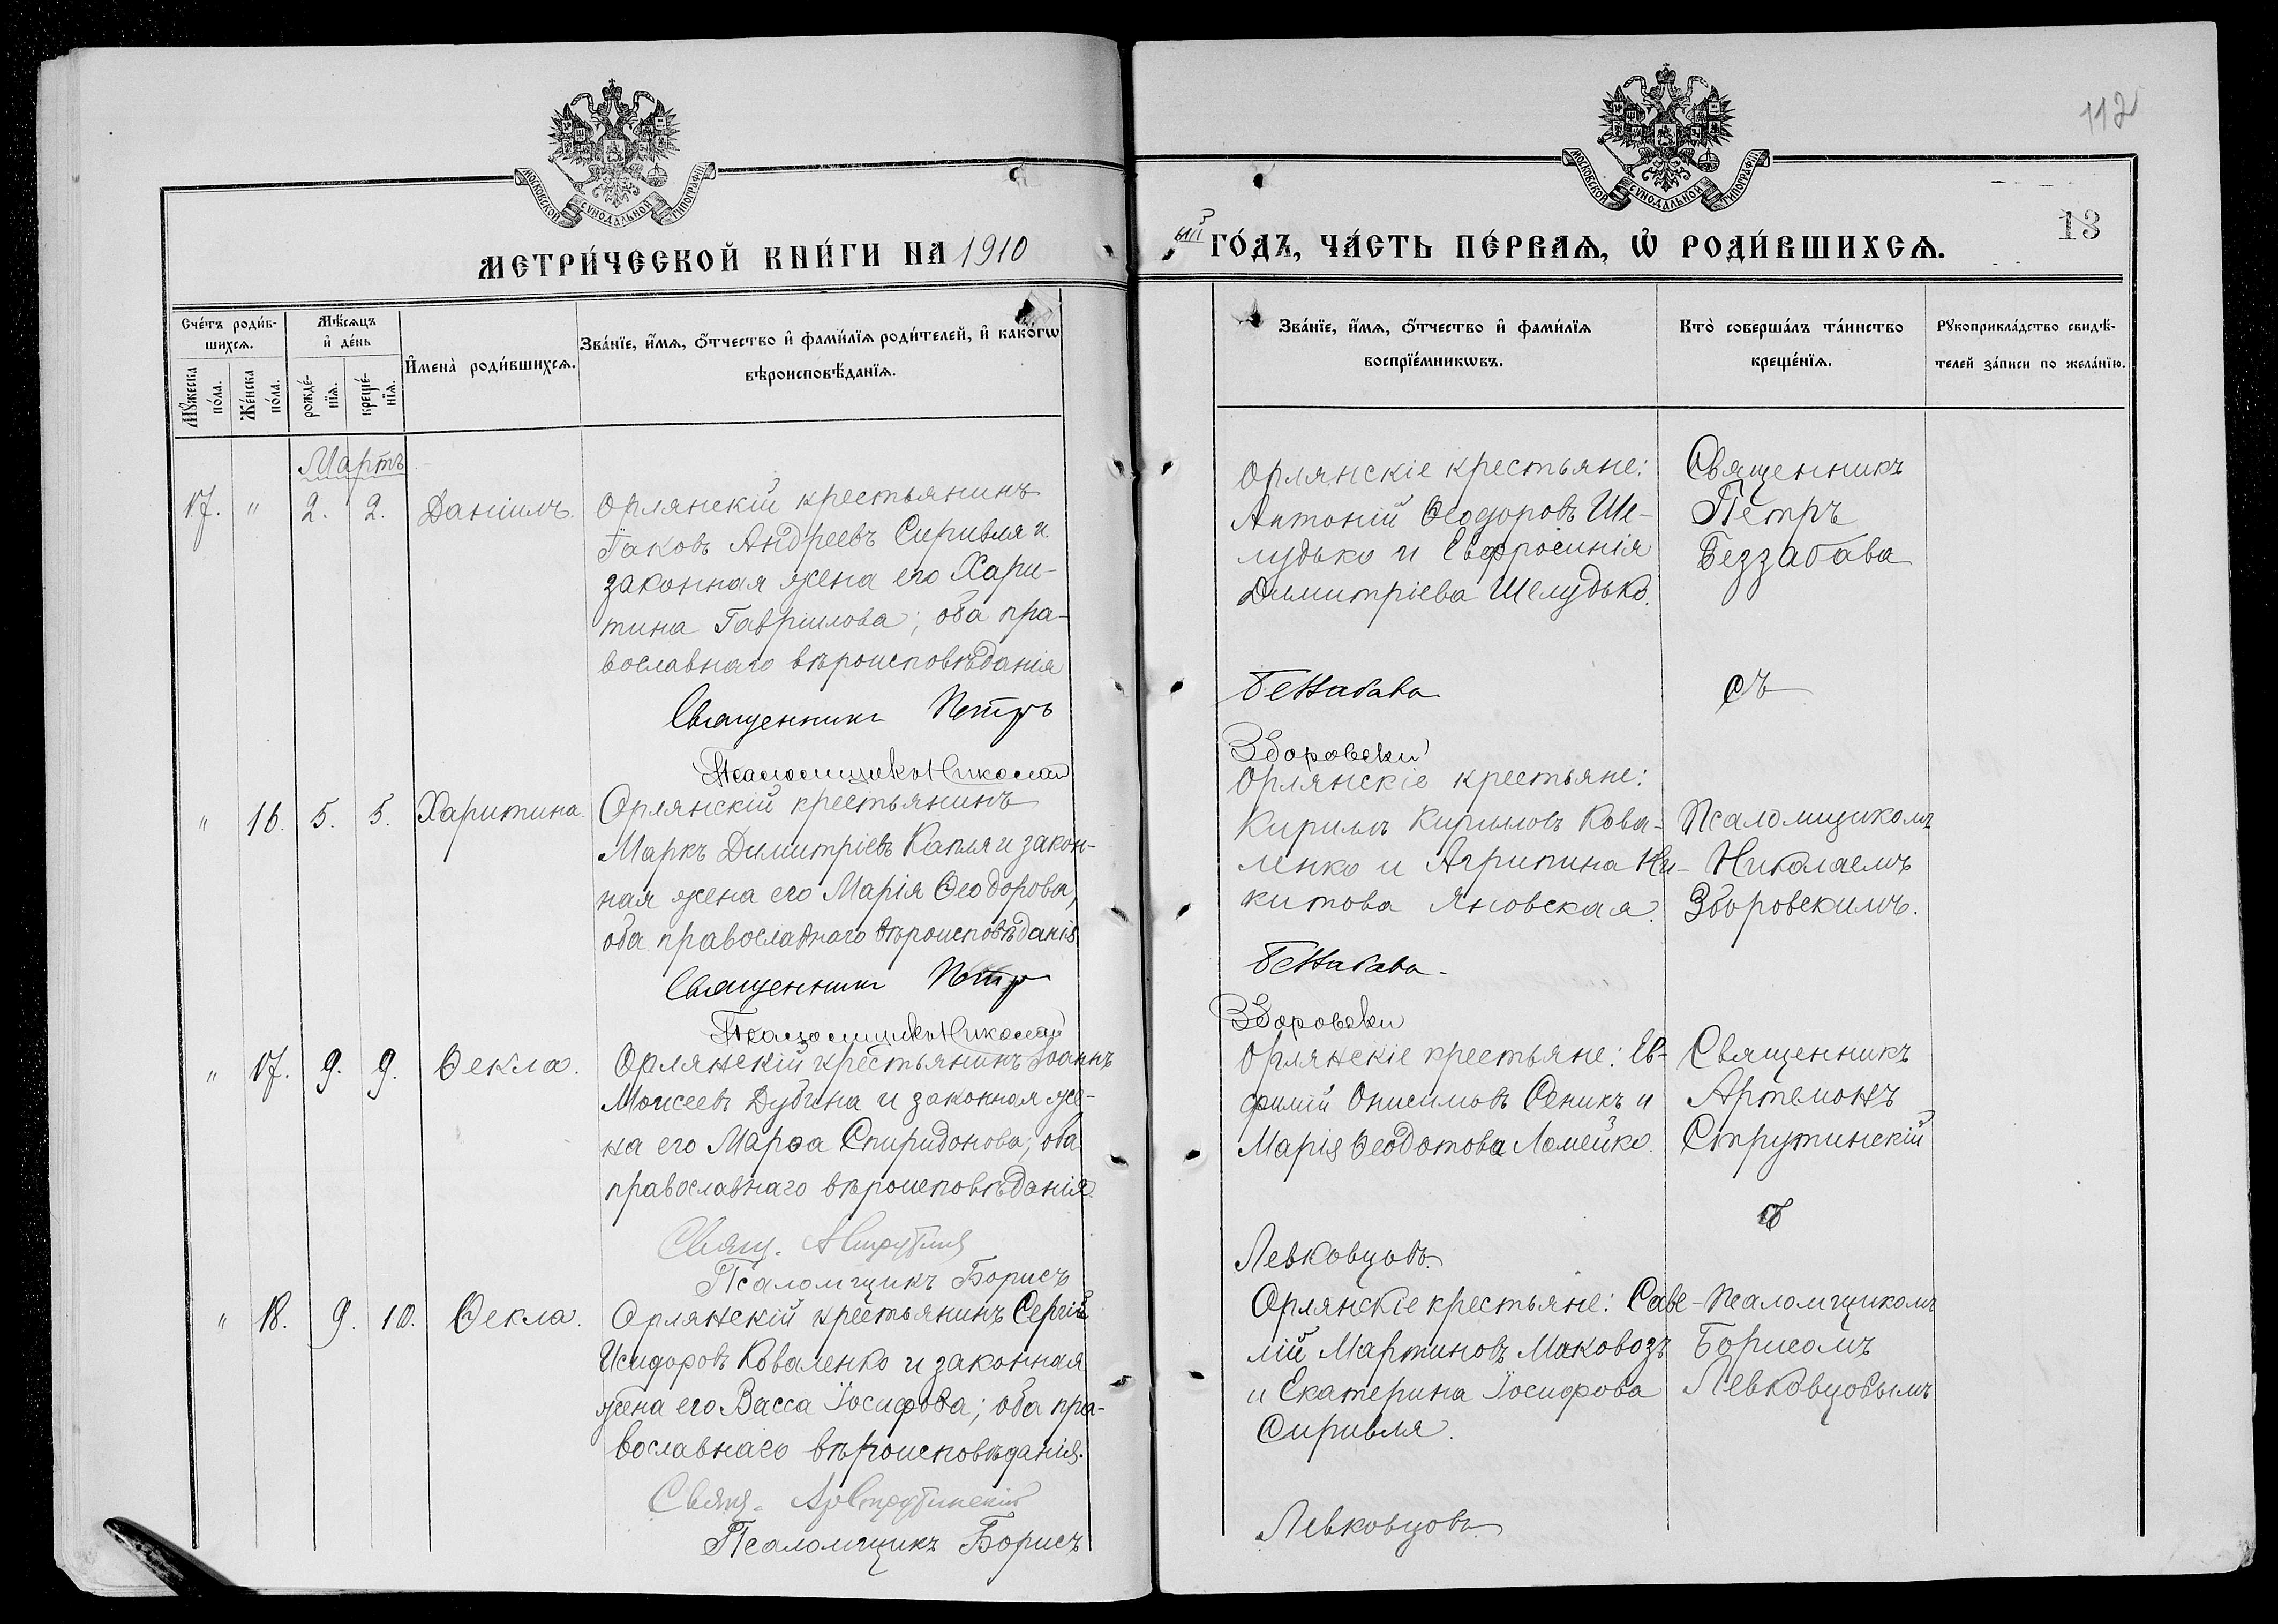 112
МОСКОВСКОЙ СѴНОДАЛЬНОЙ ТИПОГРАФІИ
МОСКОВСКОЙ СѴНОДАЛЬНОЙ ТИПОГРАФІИ
13
МЕТРИ́ЧЕСКОЙ КНИ́ГИ НА 1910
ый ГО́ДЪ, ЧА́СТЬ ПЕ́РВАѦ, Ѡ РОДИ́ВШИХСѦ.
Сче́тъ роди́в-
шихсѧ.
Мꙋжеска по́ла.
Же́нска по́ла.
Мѣ́сѧцъ
и҆ де́нь
рожде́-
нїѧ.
креще́-
нїѧ.
И҆мена̀ роди́вшихсѧ.
Зва́нїе, и҆́мѧ, ѻ҆́тчество и҆ фами́лїѧ роди́телей, и҆ како́гѡ
вѣроисповѣ́данїѧ.
Зва́нїе, и҆́мѧ, ѻ҆́тчество и҆ фами́лїѧ
воспрїе́мникѡвъ.
Кто̀ соверша́лъ та́инство
креще́нїѧ.
Рꙋкоприкла́дство свидѣ́-
телей за́писи по жела́нїю.
Мартъ
17. " 2. 2. Даніилъ.
Орлянскій крестьянинъ
Іаковъ Андреевъ Сиривля и
законная жена его Хари-
тина Гавріилова; оба пра-
вославнаго вѣроисповѣданія
Священникъ Петръ
Псаломщикъ Николай
Орлянскіе крестьяне:
Антоній Ѳеодоровъ Ше-
лудько и Евфросинія
Димитріева Шелудько.
Беззабава
Зборовскій
Священникъ
Петръ
Беззабава
съ
" 16. 5. 5. Харитина.
Орлянскій крестьянинъ
Маркъ Димитріевъ Капля и закон-
ная жена его Марія Ѳеодорова,
оба православнаго вѣроисповѣданія.
Священникъ Петръ
Псаломщикъ Николай
Орлянскіе крестьяне:
Кириллъ Кирилловъ Кова-
ленко и Агрипина Ни-
китова Яновская.
Беззабава
Зборовскій
Псаломщикомъ
Николаемъ
Зборовскимъ.
" 17. 9. 9. Ѳекла.
Орлянскій крестьянинъ Іоаннъ
Моисеевъ Дубина и законная же-
на его Марѳа Спиридонова, оба
православнаго вѣроисповѣданія.
Свящ. А Струтинскій
Псаломщикъ Борисъ
Орлянскіе крестьяне: Ев-
фимій Онисимовъ Ѳеникъ и
Марія Ѳеодотова Ломейко.
Левковцовъ.
Священникъ
Артемонъ
Струтинскій
съ
" 18. 9. 10. Ѳекла.
Орлянскій крестьянинъ Сергій
Исидоровъ Коваленко и законная
жена его Васса Іосифова; оба пра-
вославнаго вѣроисповѣданія.
Свящ. Ар Струтинскій
Псаломщикъ Борисъ
Орлянскіе крестьяне: Саве-
лій Мартиновъ Маковозъ
и Екатерина Іосифова
Сиривля.
Левковцовъ.
Псаломщикомъ
Борисомъ
Левковцовымъ